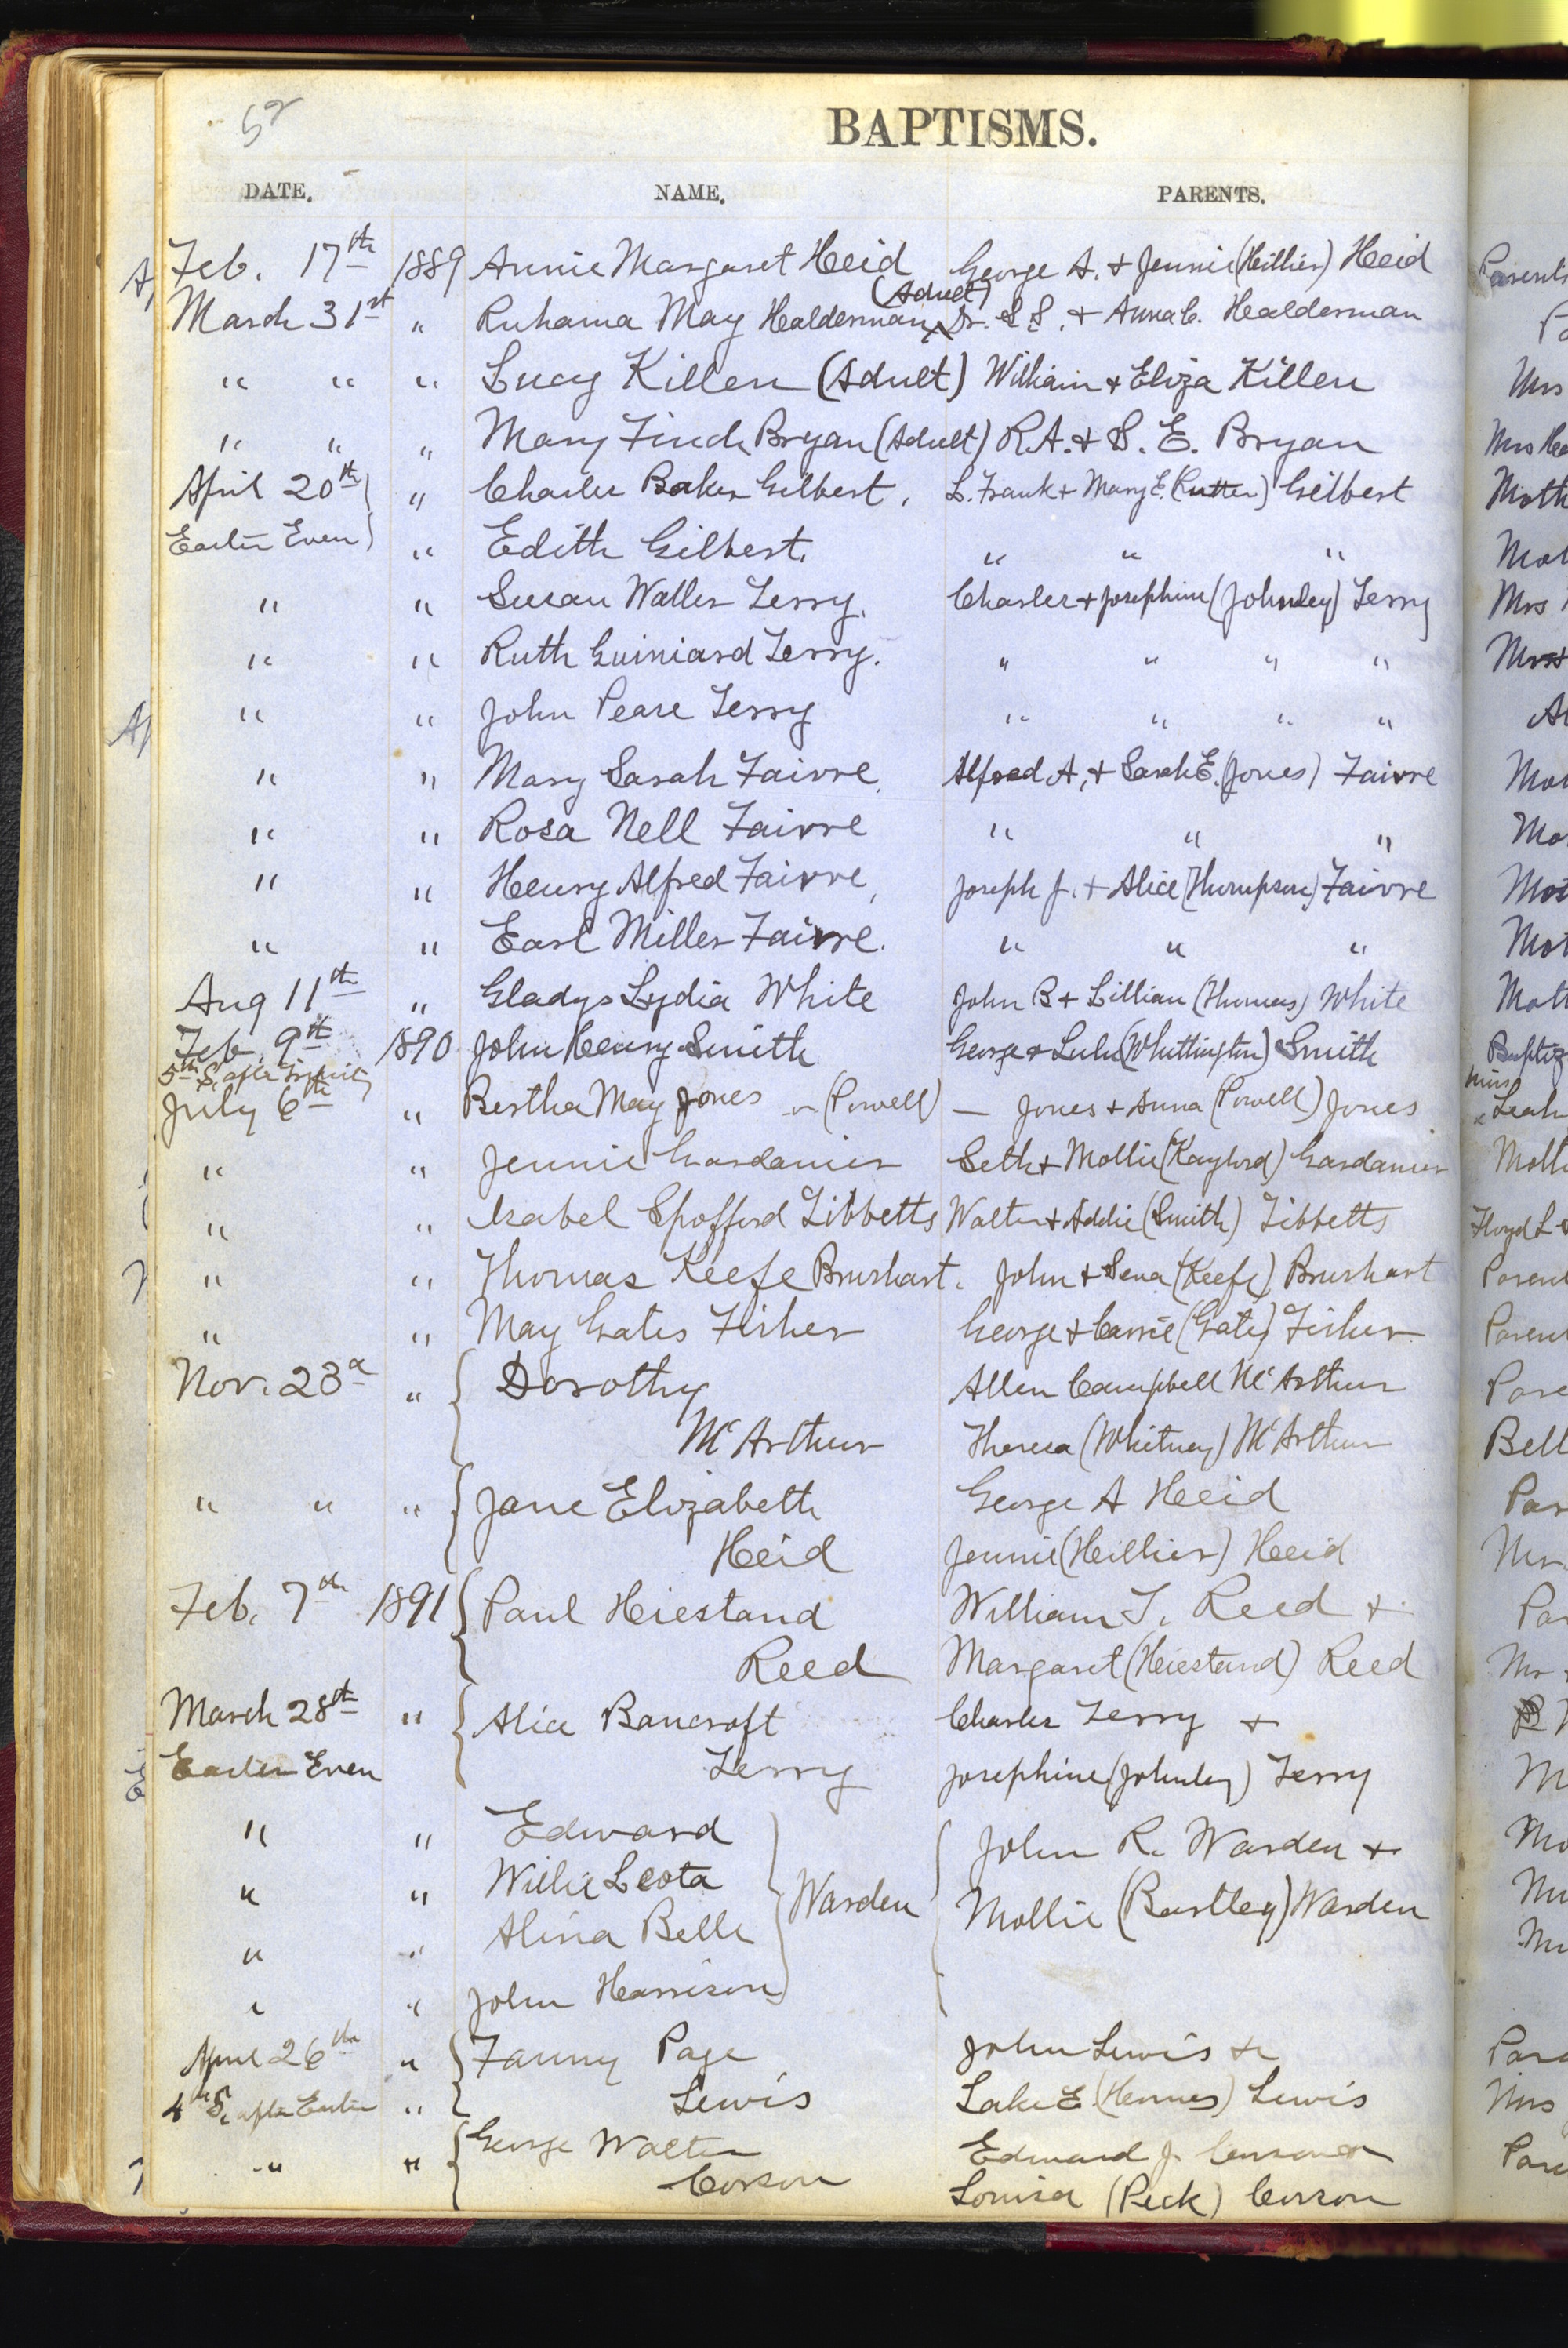 52
BAPTISMS.
DATE. NAME. PARENTS.
Feb. 17th 1889 Annie Margaret Heid George A. + Jennie (Hillier) Heid
(Adult)
March 31st " Ruhama May Healderman Dr. S. S. + Anna C. Healderman
" " " Lucy Killen (Adult) William + Eliza Killen
" " " Mary Finch Bryan (Adult) R.A. + S. E. Bryan
April 20th " Charles Baker Gilbert, L. Frank + Mary E. (Rutter) Gilbert
Easter Even " Edith Gilbert. " " "
" " Susan Waller Terry. Charles + Josephine (Johnley) Terry
" " Ruth Guiniard Terry. " " " "
" " John Peare Terry " " " "
" " Mary Sarah Faivre. Alfred A. + Sarah E. (Jones) Faivre
" " Rosa Nell Faivre " " "
" " Henry Alfred Faivre, Joseph J. + Alice (Thompson) Faivre
" " Earl Miller Faivre. " " "
Aug 11th " Gladys Lydia White John B + Lillian (Thomas) White
Feb. 9th 1890 John Henry Smith George + Lulu (Whittington) Smith
5th S. after Trinity
July 6th " Bertha May Jones or (Powell) — Jones + Anna (Powell) Jones
" " Jennie Gardanier Seth + Mollie (Kaylord) Gardanier
" " Isabel Spofford Tibbetts Walter + Addie (Smith) Tibbetts
" " Thomas Keefe Brushart. John + Sena (Keefe) Brushart
" " May Gates Fisher George + Carrie (Gates) Fisher
Nov. 23d " Dorothy Allen Campbell McArthur
McArthur Theresa (Whitney) McArthur
" " " Jane Elizabeth George A Heid
Heid Jennie (Hillier) Heid
Feb. 7th 1891 Paul Heistand William T. Reed +
Reed Margaret (Heistand) Reed
March 28th " Alice Bancroft Charles Terry +
Easter Even Terry Josephine (Johnley) Terry
" " Edward John R. Warden +
" " Willie Leota Warden Mollie (Bartley) Warden
" " Alina Belle
" " John Harrison
April 26th " Fanny Page John Lewis +
4th S. after Easter " Lewis Lake E. (Hermes) Lewis
" " George Walter Edward J. Corson +
Corson Louisa (Peck) Corson